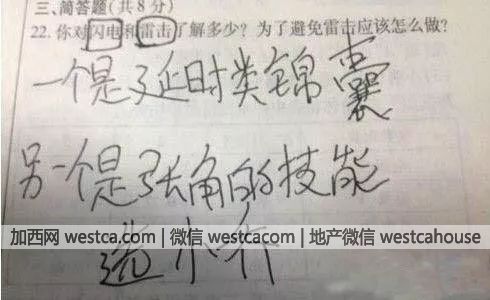 三、简答题(共8分)
22. 你对闪电和雷击了解多少？为了避免雷击应该怎么做？
一个是延时类锦囊
另一个是张角的技能
选小乔
加西网 westca.com | 微信 westcacom | 地产微信 westcahouse